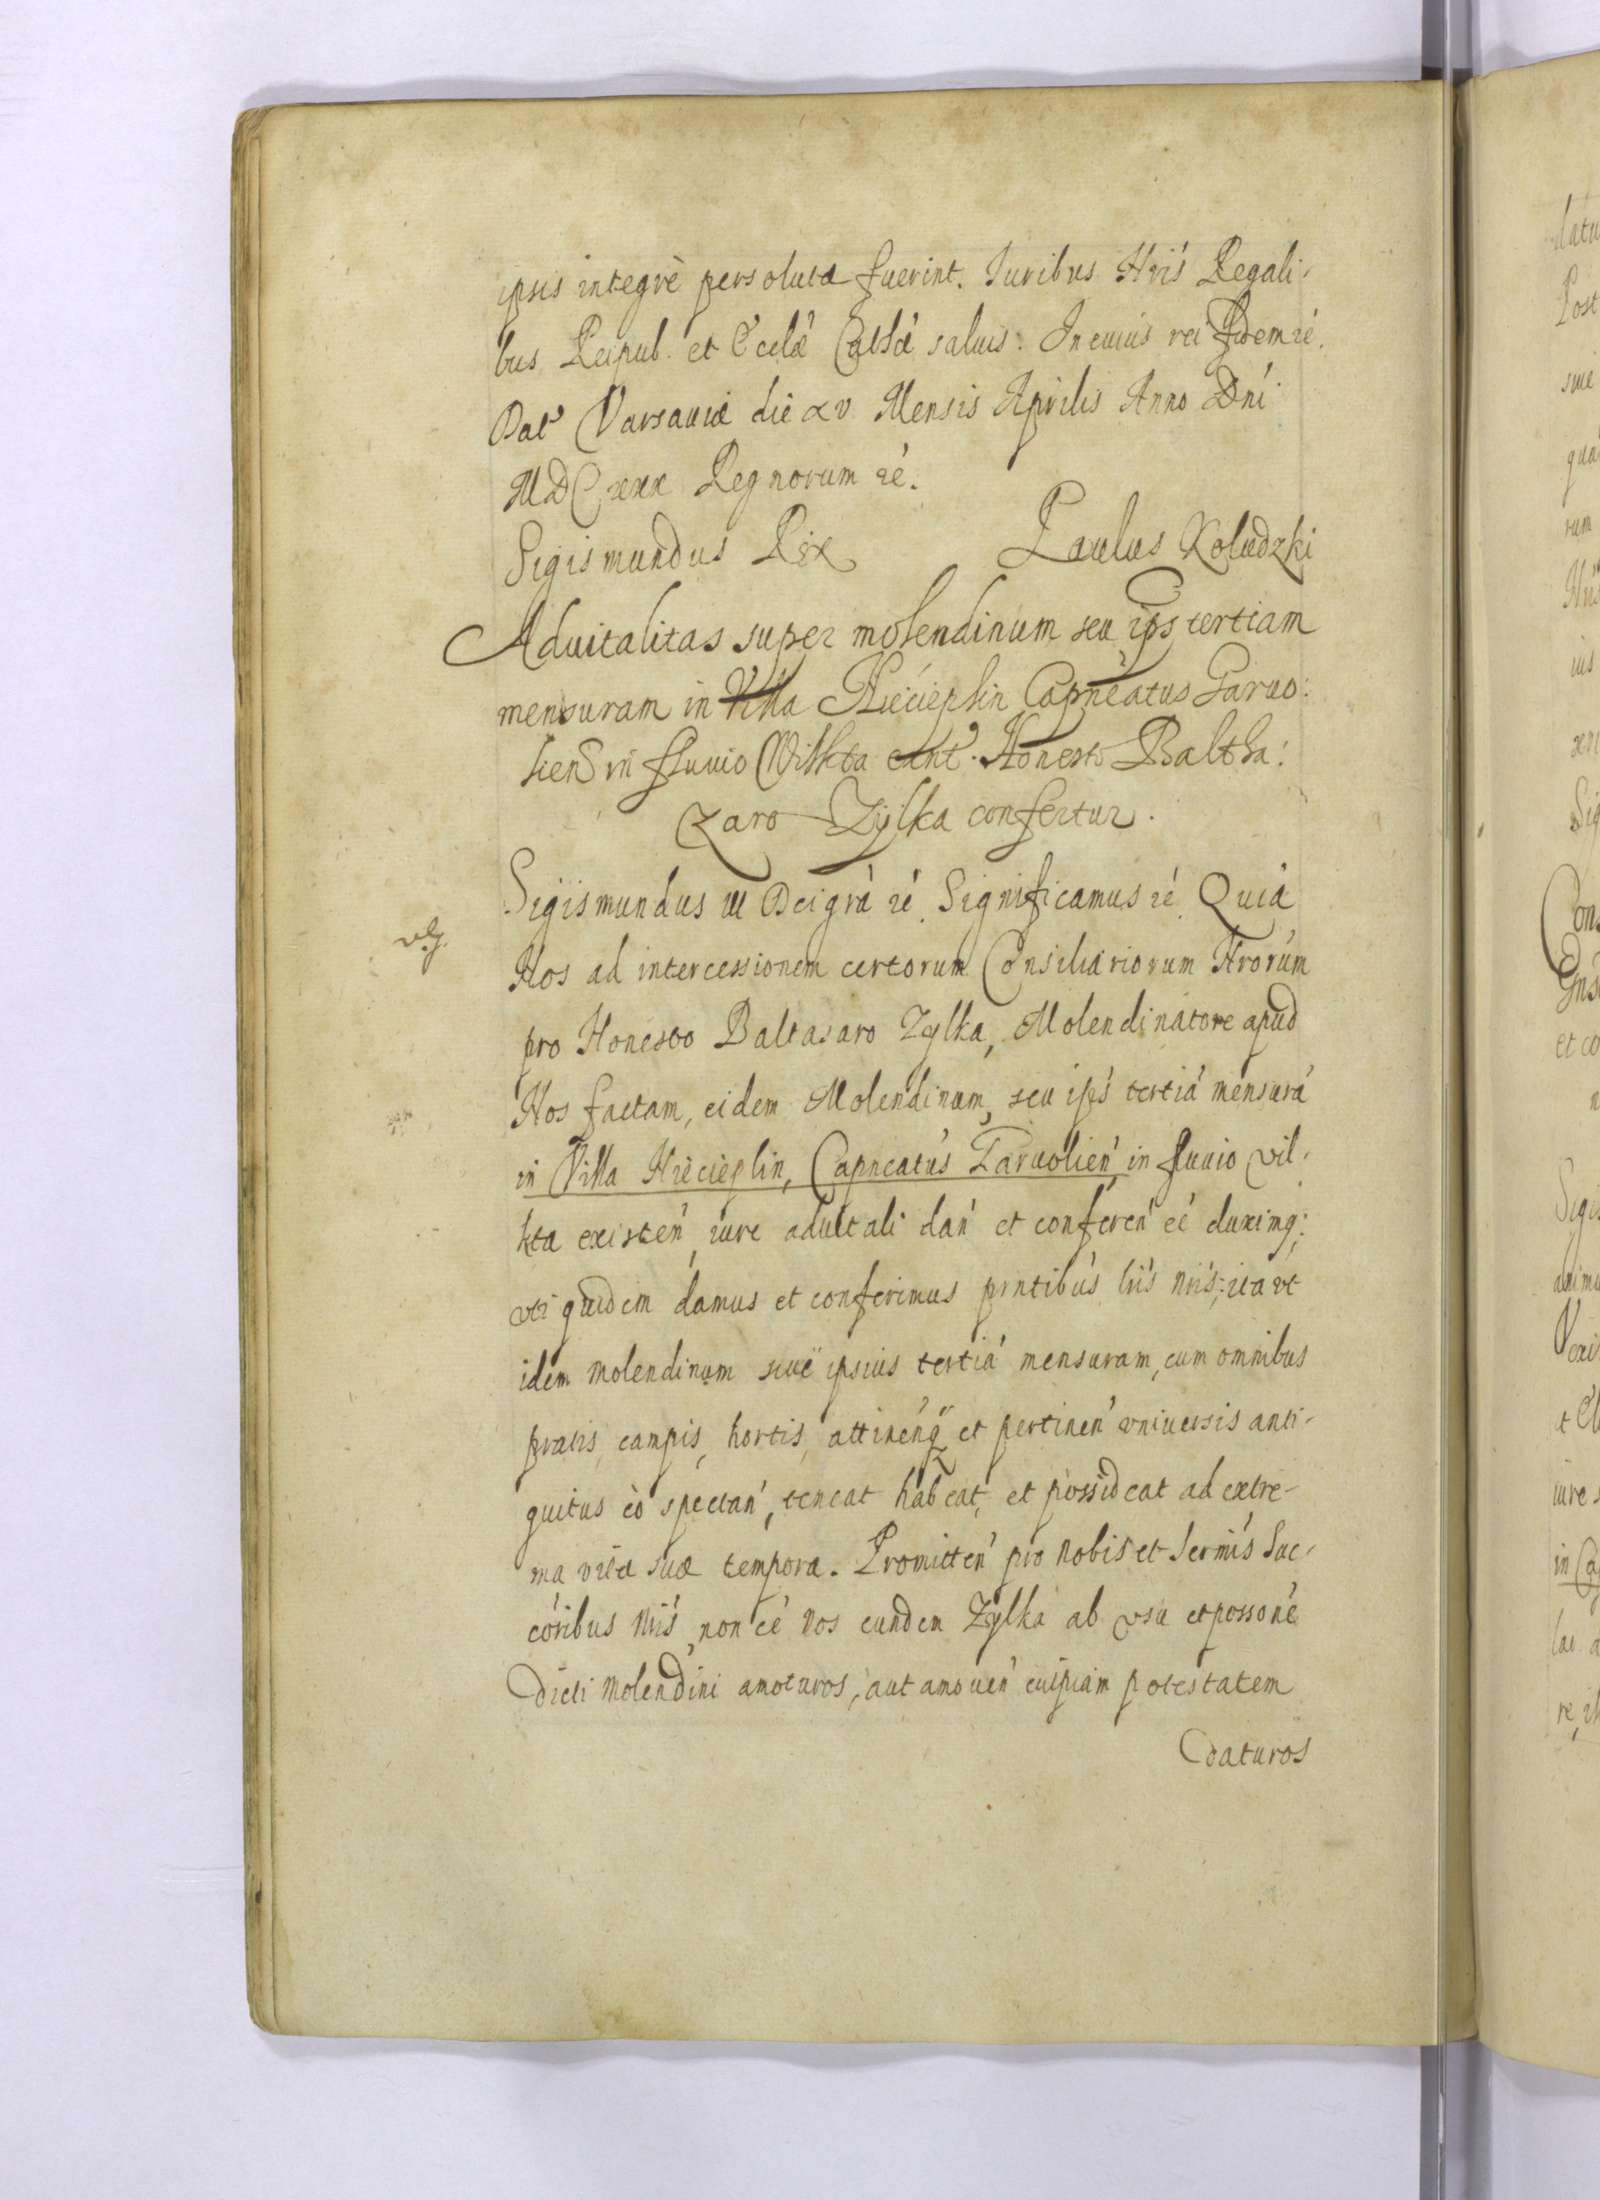 ipsis integrè persolutæ fuerint. Iuribus Nris Regali-
bus Reipub. et Eccłæ Cathæ saluis. In cuius rei fidem ré.
Dat Varsauiæ die xv Mensis Aprilis Anno Dni
MDCxxx Regnorum ré.
Sigismundus Rex Paulus Koludzki
Aduitalitas super molendinum seu ips tertiam
mensuram in Villa Niecieplin Capneatus Garuo:
lien in fluuio Wilkta Honesto Baltha:
zaro Zylka confertur.
Sigismundus III Dei grá ré. Significamus ré. Quia
Nos ad intercessionem certorum Consiliariorum Nrorum
pro Honesto Baltasaro Zylka, Molendinatore apud
Nos factam, eidem Molendinum, seu ips tertiá mensurá
in Villa Niecieplin, Capneatus Garuolien in fluuio Wil-
kta existen, iure aduitali dan et conferen eé duximq;
vti quidem damus et conferimus pntibus lris nris; ita vt
idem molendinum siue ipsius tertiá mensuram, cum omnibus
pratis, campis, hortis, attinenq et pertinen vniuersis anti-
quitus eò spectan, teneat habeat, et possideat ad extre-
ma vitæ suæ tempora. Promitten pro nobis et Sermis Suc-
coribus nris, non eé nos eundem Zylka ab vsu et possoné
dicti Molendini amoturos, aut amouen cuipiam potestatem
daturos